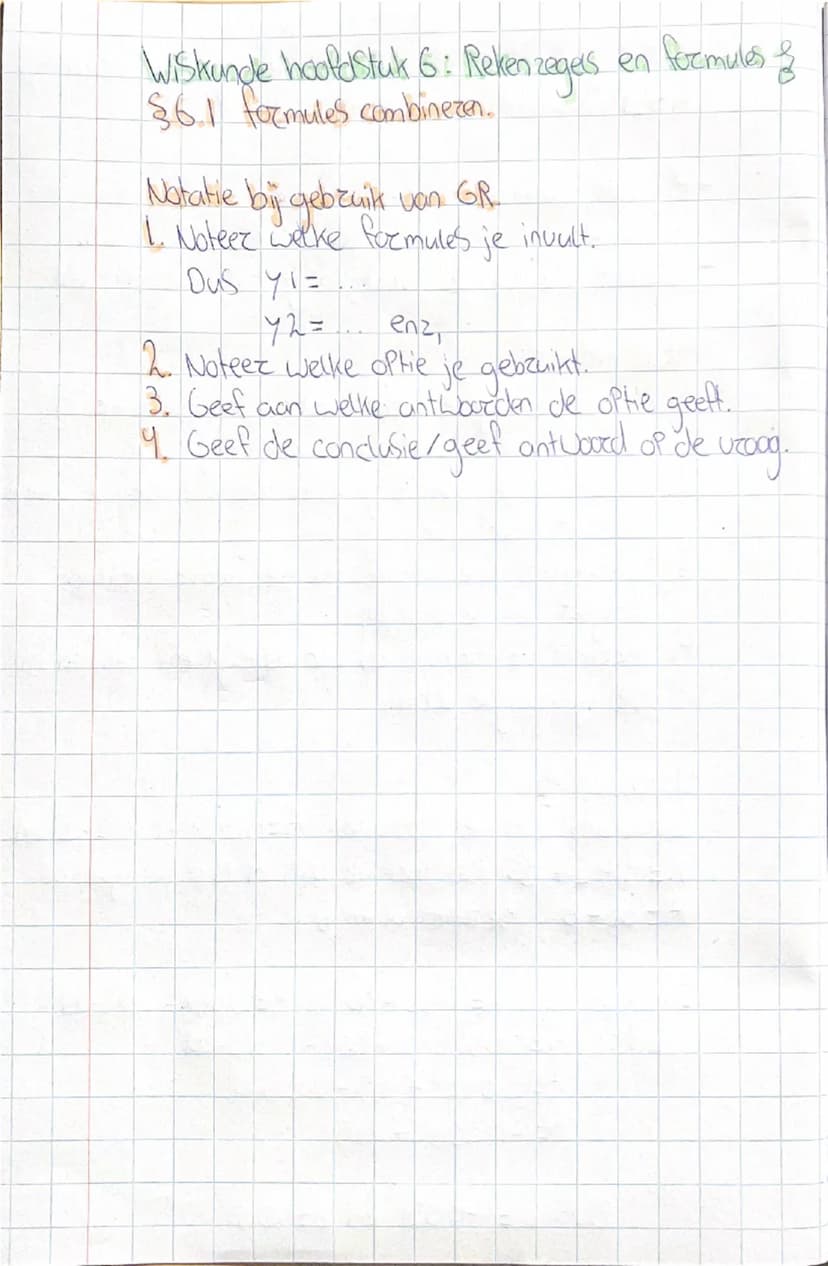 Wiskunde hoofdstuk 6: Rekenregels en formules
§6.1 formules combineren.
Notatie bij gebruik van GR
1. Noteer welke formules je invult.
Dus y1= ...
y2= ... enz,
2. Noteer welke optie je gebruikt.
3. Geef aan welke antwoorden de optie geeft.
4. Geef de conclusie/geef antwoord op de vraag.